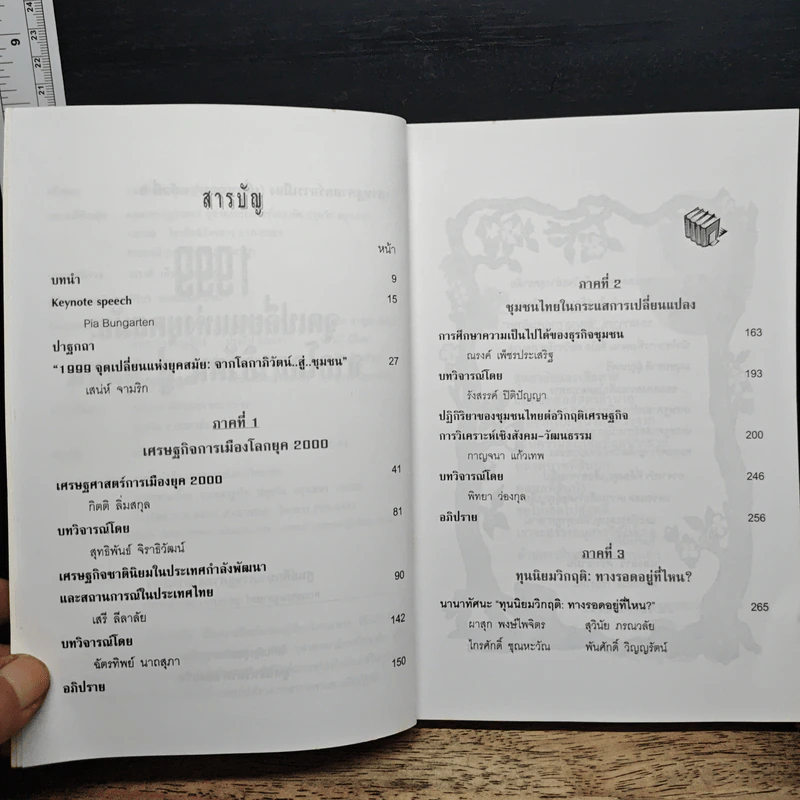 สารบัญ
หน้า
บทนำ 9
Keynote speech 15
Pia Bungarten
ปาฐกถา
"1999 จุดเปลี่ยนแห่งยุคสมัย: จากโลกาภิวัตน์..สู่..ชุมชน" 27
เสน่ห์ จามริก
ภาคที่ 1
เศรษฐกิจการเมืองโลกยุค 2000
เศรษฐศาสตร์การเมืองยุค 2000 41
กิตติ ลิ่มสกุล
บทวิจารณ์โดย 81
สุทธิพันธ์ จิราธิวัฒน์
เศรษฐกิจชาตินิยมในประเทศกำลังพัฒนา
และสถานการณ์ในประเทศไทย 90
เสรี ลีลาลัย
บทวิจารณ์โดย 142
ฉัตรทิพย์ นาถสุภา
อภิปราย 150
ภาคที่ 2
ชุมชนไทยในกระแสการเปลี่ยนแปลง
การศึกษาความเป็นไปได้ของธุรกิจชุมชน 163
ณรงค์ เพ็ชรประเสริฐ
บทวิจารณ์โดย 193
รังสรรค์ ปิติปัญญา
ปฏิกิริยาของชุมชนไทยต่อวิกฤติเศรษฐกิจ
การวิเคราะห์เชิงสังคม-วัฒนธรรม 200
กาญจนา แก้วเทพ
บทวิจารณ์โดย 246
พิทยา ว่องกุล
อภิปราย 256
ภาคที่ 3
ทุนนิยมวิกฤติ: ทางรอดอยู่ที่ไหน?
นานาทัศนะ "ทุนนิยมวิกฤติ: ทางรอดอยู่ที่ไหน?" 265
ผาสุก พงษ์ไพจิตร สุวินัย ภรณวลัย
ไกรศักดิ์ ชุณหะวัณ พันศักดิ์ วิญญรัตน์
9
24
23
22
21